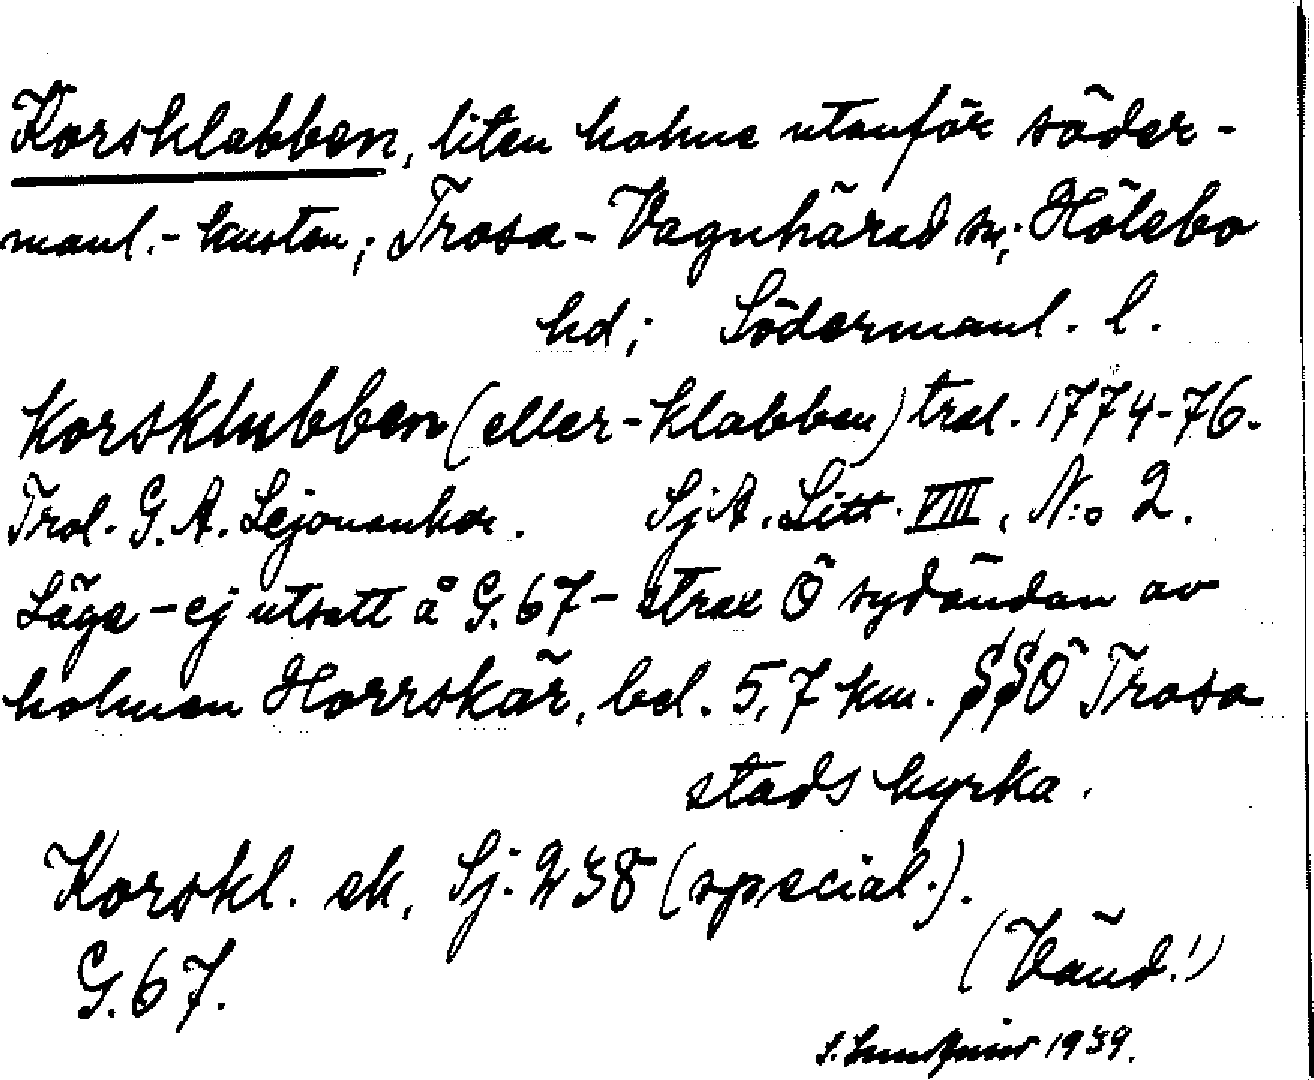 Korsklabben, liten holme utanför söder-
manl.-kusten; Trosa-Vagnhärad sn; Hölebo
hd; Södermanl. l.
Korsklubben (eller -klabben) trol. 1774-76.
Trol. G. A. Lejonankar. SjA. Litt. VIII, N:o 2.
Läge - ej utsatt å G. 67 - strax Ö sydändan av
holmen Horrskär, bel. 5,7 km. SSÖ Trosa
stads kyrka.
Korskl. ek. Sj. 238 (special.).
G. 67.
(Vänd!)
1939.